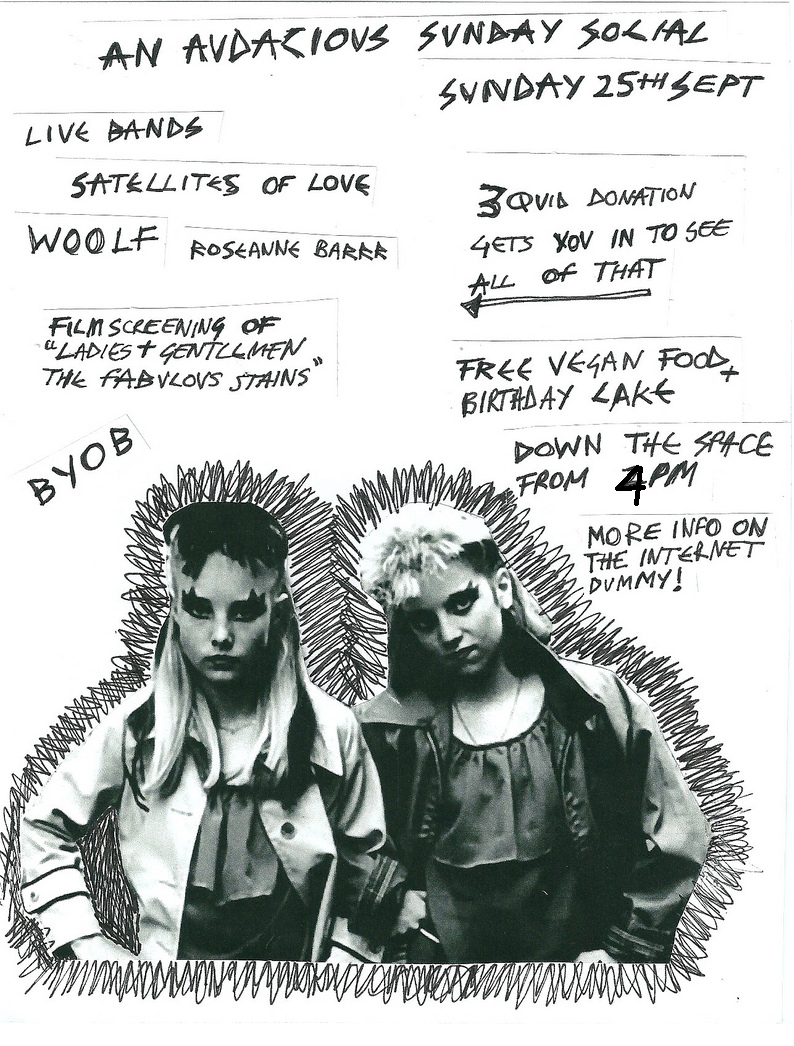 AN AUDACIOUS SUNDAY SOCIAL
SUNDAY 25TH SEPT
LIVE BANDS
SATELLITES OF LOVE
WOOLF
ROSEANNE BARRR
3 QUID DONATION
GETS YOU IN TO SEE
ALL OF THAT
FILM SCREENING OF
"LADIES + GENTLEMEN
THE FABULOUS STAINS"
FREE VEGAN FOOD +
BIRTHDAY CAKE
BYOB
DOWN THE SPACE
FROM 4PM
MORE INFO ON
THE INTERNET
DUMMY!